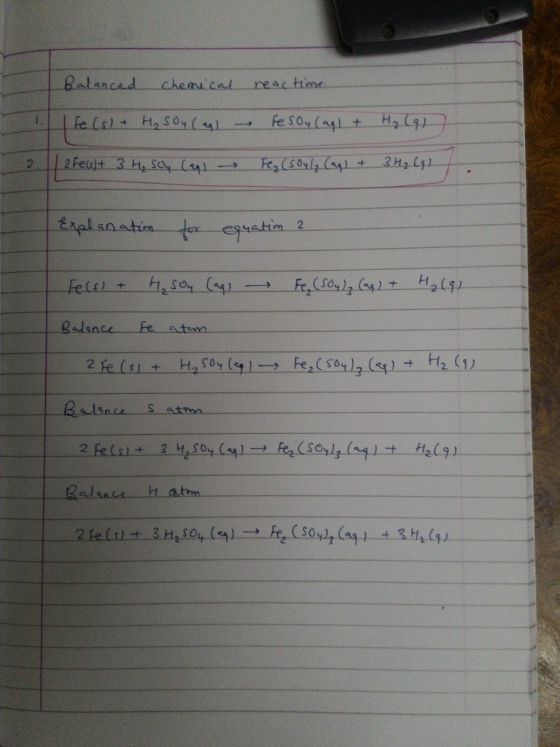 Balanced chemical reactions
1. Fe(s) + H₂SO₄(aq) → FeSO₄(aq) + H₂(g)
2. 2Fe(s) + 3 H₂SO₄ (aq) → Fe₂(SO₄)₃(aq) + 3H₂(g)
Explanation for equation 2
Fe(s) + H₂SO₄ (aq) → Fe₂(SO₄)₃(aq) + H₂(g)
Balance Fe atom
2 Fe(s) + H₂SO₄(aq) → Fe₂(SO₄)₃(aq) + H₂(g)
Balance S atom
2 Fe(s) + 3 H₂SO₄(aq) → Fe₂(SO₄)₃(aq) + H₂(g)
Balance H atom
2Fe(s) + 3H₂SO₄(aq) → Fe₂(SO₄)₃(aq) + 3H₂(g)